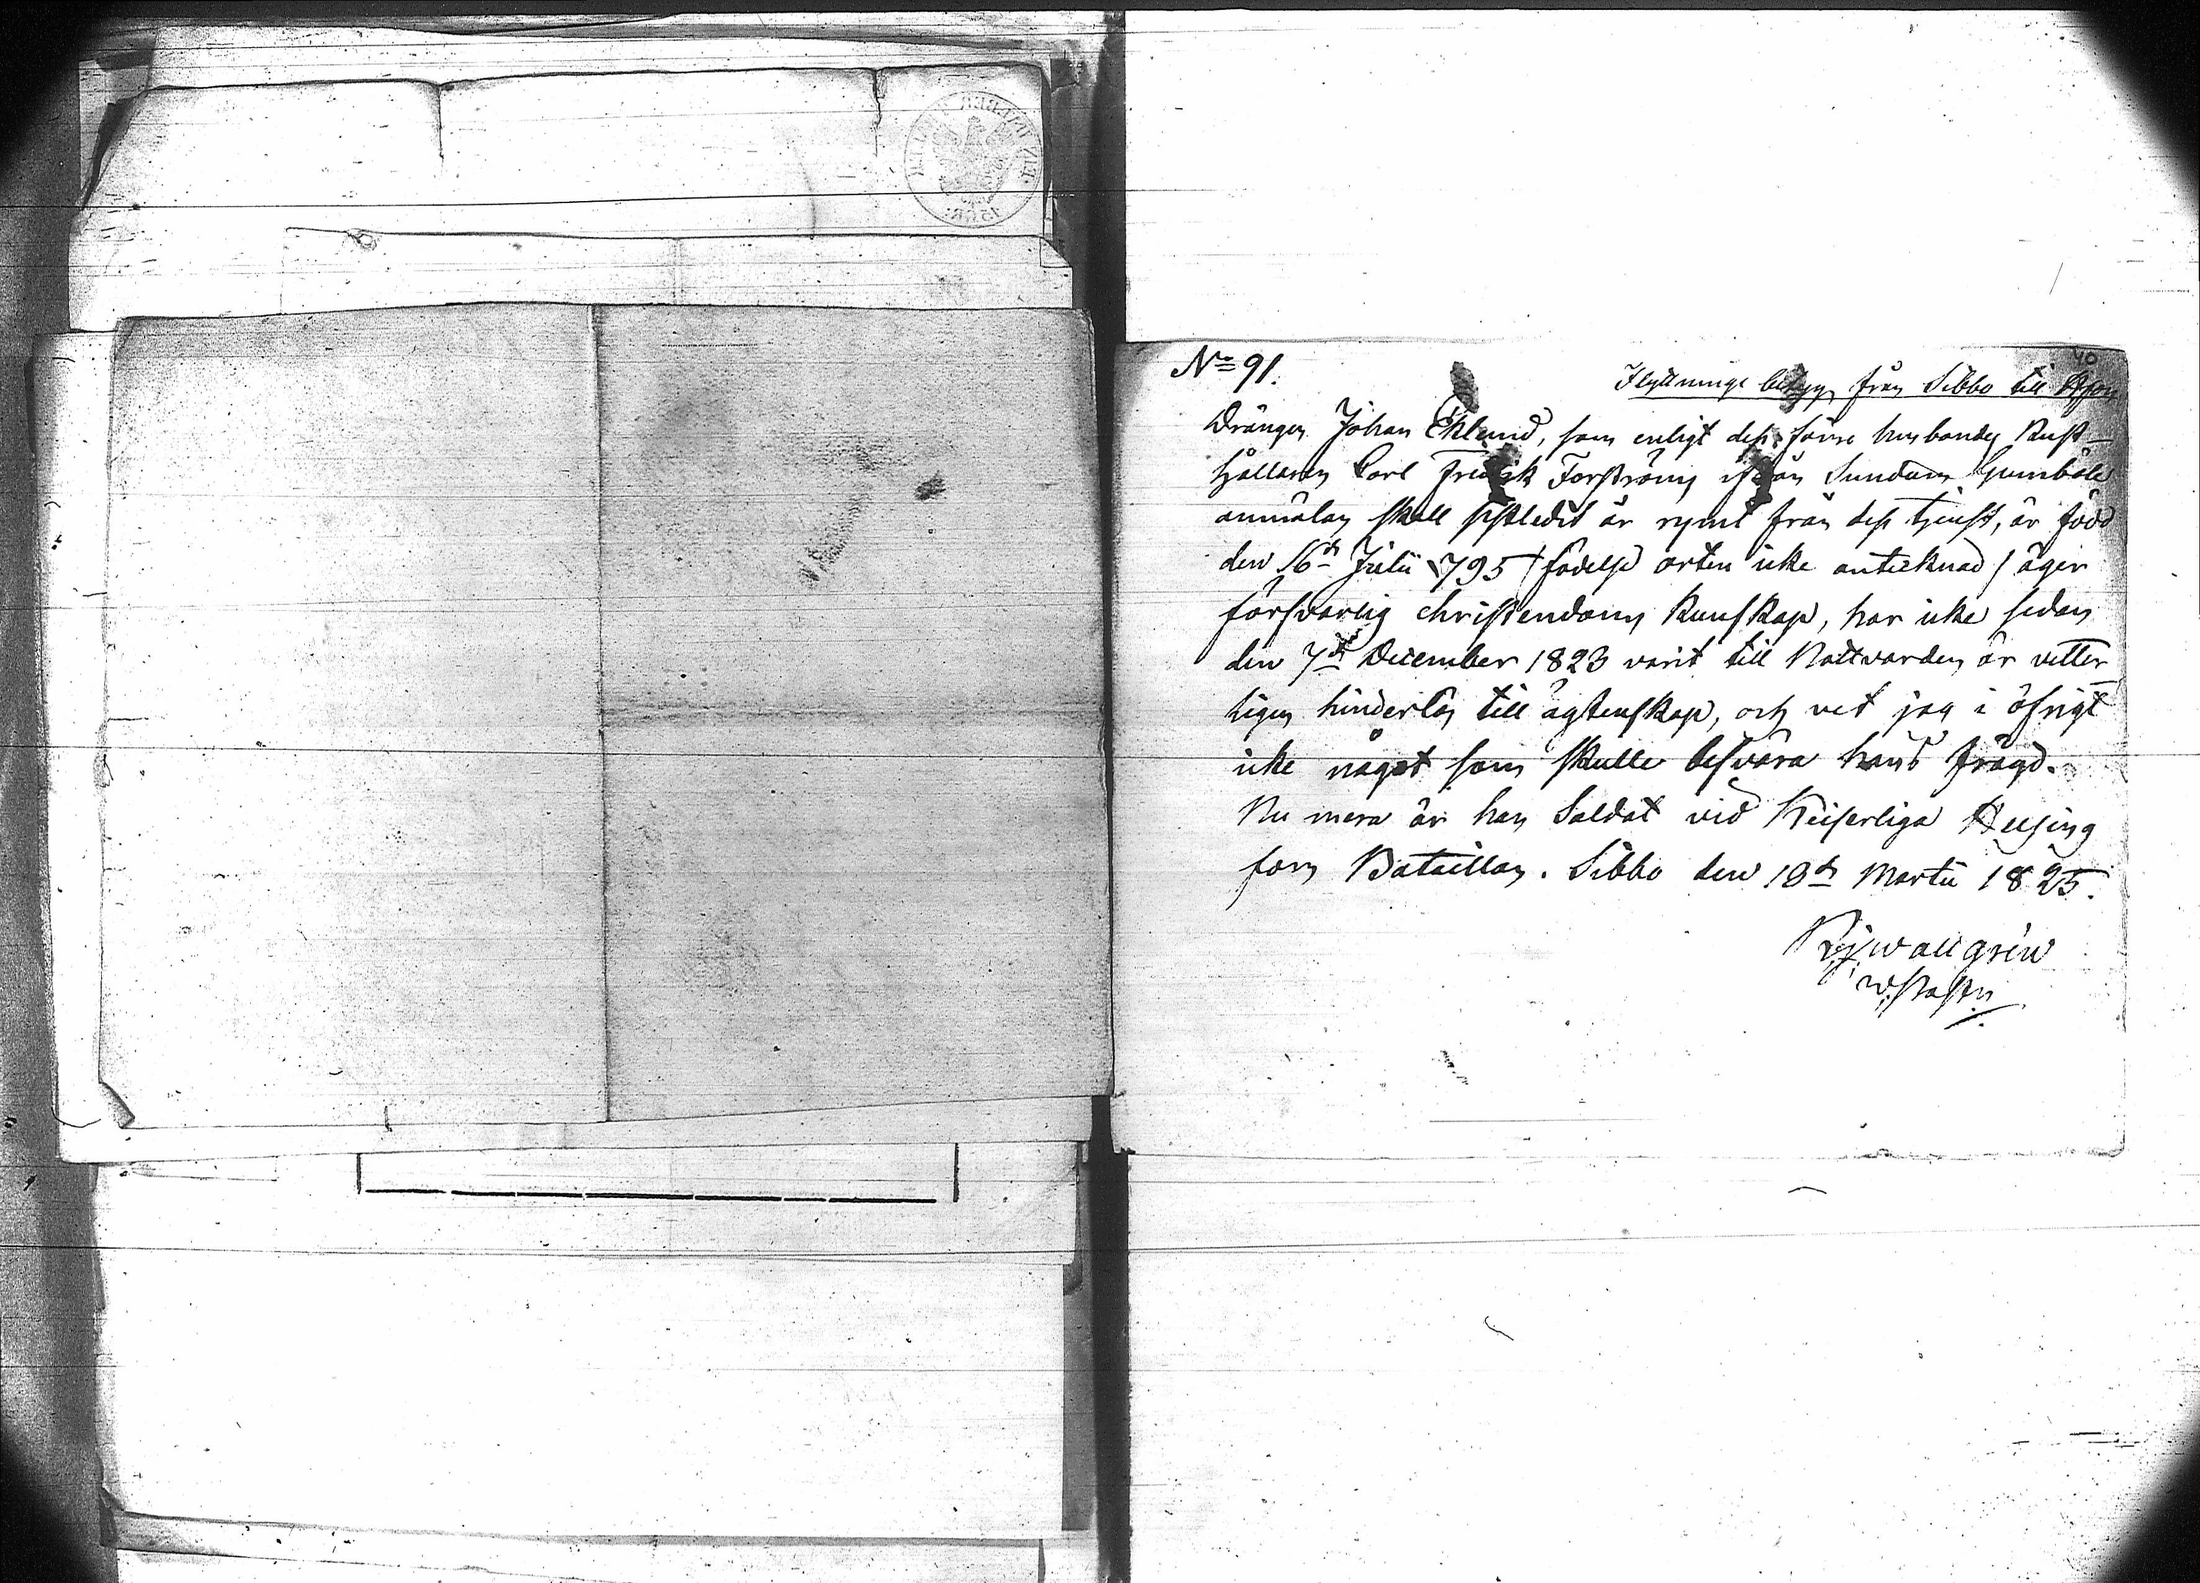 40
No 91.
Flyttnings betyg från Sibbo till
Drängen Johan Eklund, som enligt dess förre husbonde Rust-
hållaren Carl Fredrik Forström ifrån Gumböle
anmälan skall sistledit år rymt från dess tjenst, är född
den 16de Julii 1795 / födelse orten icke antecknad / äger
försvarlig christendoms kunskap, har icke sedan
den 7de December 1823 varit till Nattvarden är vetter-
ligen hinderlös till ägtenskap, och vet jag i öfrigt
icke något som skulle besvära hans frägd.
Nu mera är han Soldat vid Keiserliga Helsing
fors Bataillon. Sibbo den 10de Martii 1825.
Wallgrén